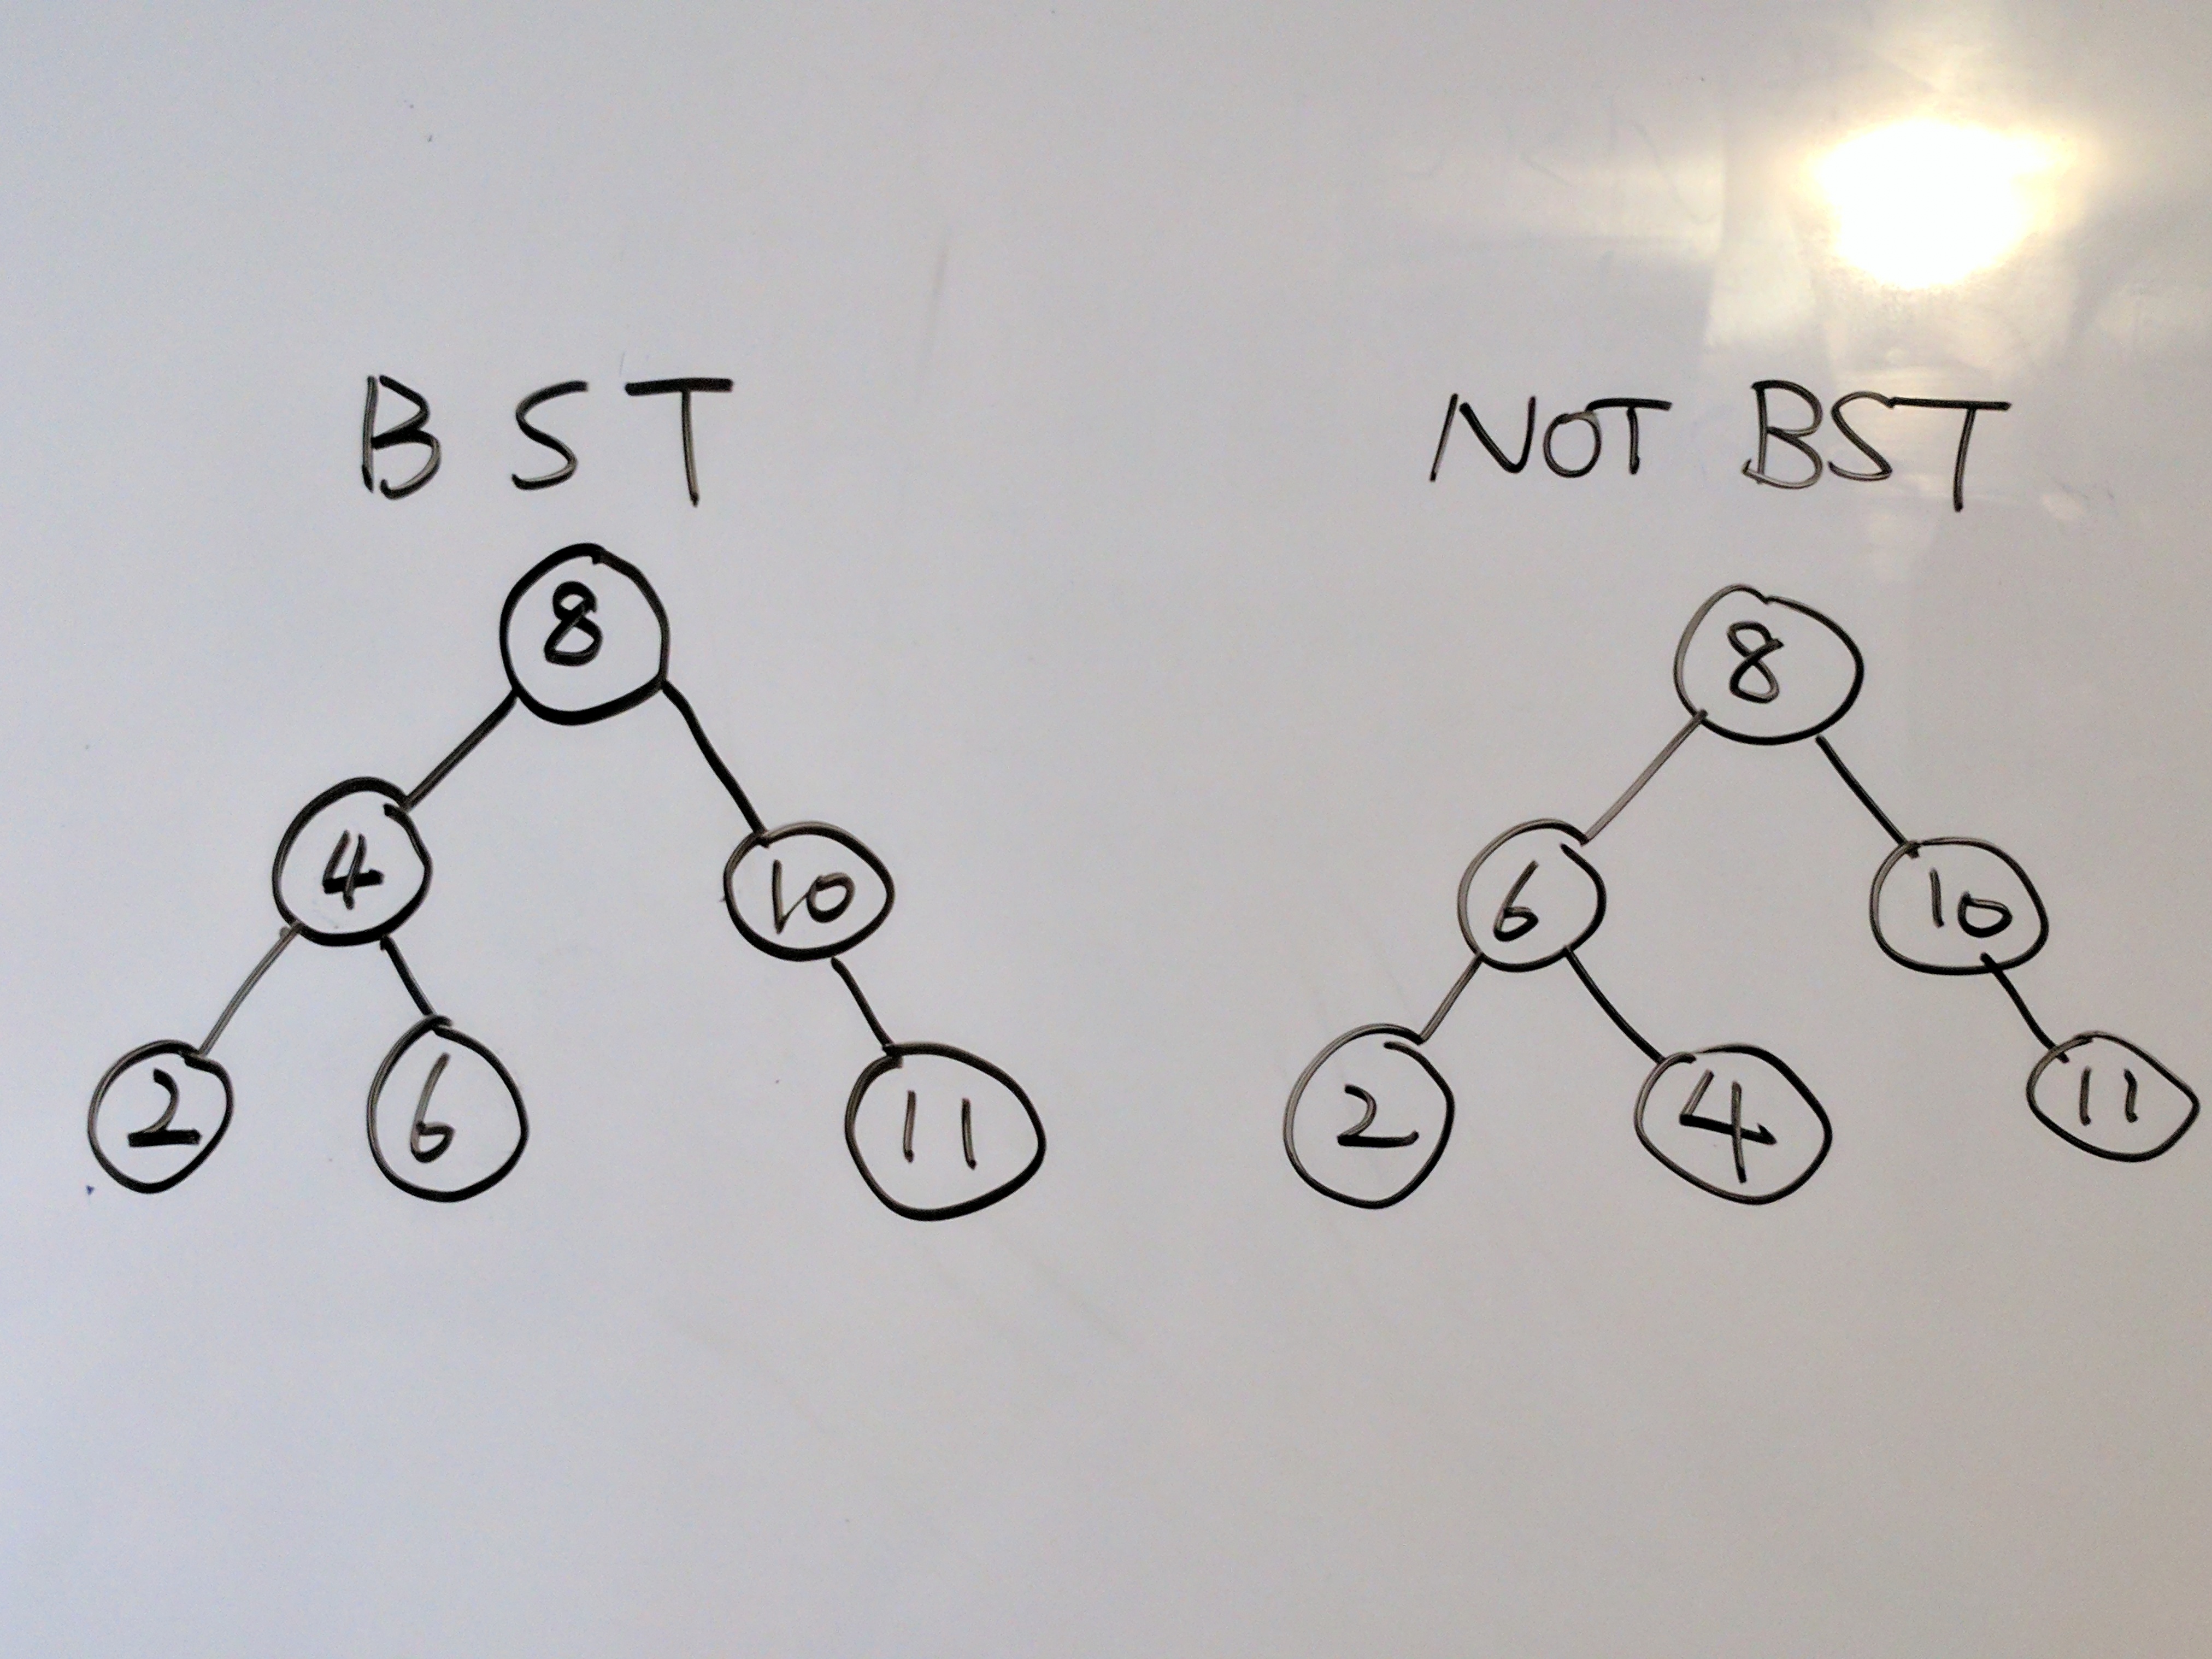 BST
8
4 10
2 6 11
NOT BST
8
6 10
2 4 11